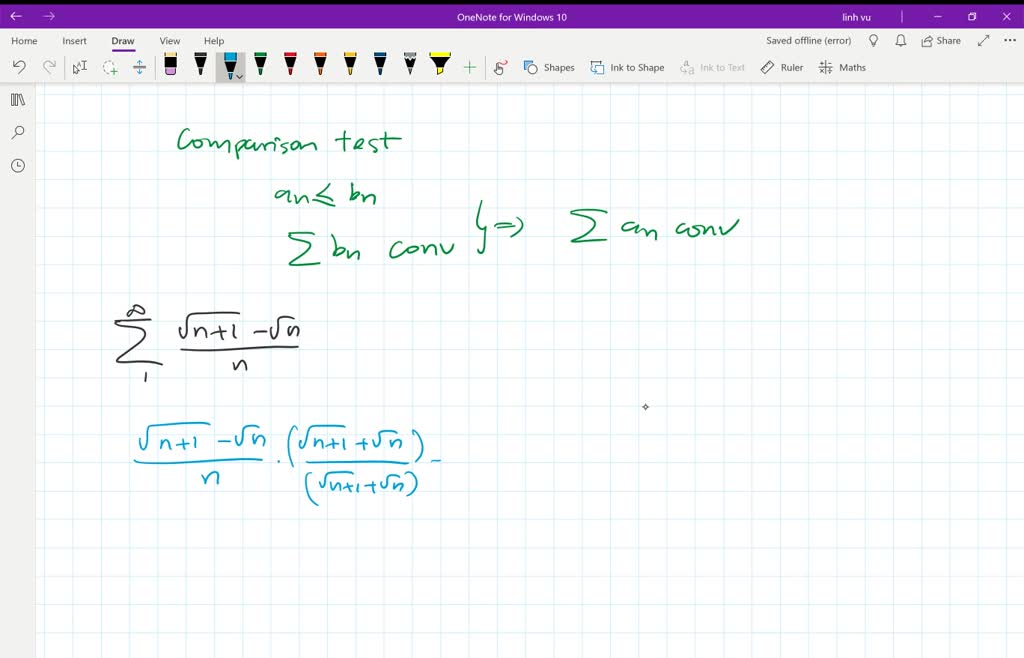 OneNote for Windows 10
linh vu
Home Insert Draw View Help
Saved offline (error) Share
Shapes Ink to Shape Ink to Text Ruler Maths
Comparison test
an ≤ bn
Σ bn conv } ⇒ Σ an conv
∞
Σ (√(n+1) - √n) / n
1
(√(n+1) - √n) / n · ((√(n+1) + √n) / (√(n+1) + √n)) =